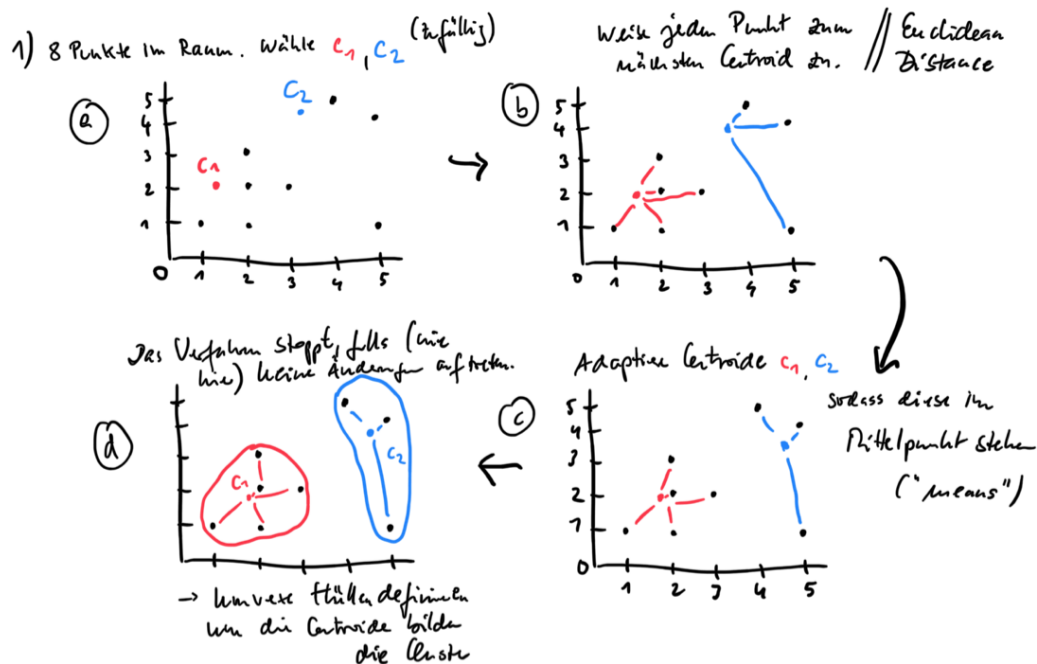 1) 8 Punkte im Raum. Wähle C1, C2 (zufällig)
a
C2
C1
5
4
3
2
1
0
1 2 3 4 5
Weise jeden Punkt zum
nächsten Centroid zu. // Euclidean
Distance
b
5
4
3
2
1
0
1 2 3 4 5
Adaptiere Centroide C1, C2
sodass diese im
Mittelpunkt stehen
("means")
c
5
4
3
2
1
0
1 2 3 4 5
Das Verfahren stoppt, falls (wie
hier) keine Änderungen auftreten.
d
C1
C2
→ konvexe Hüllen definieren
um die Centroide bilden
die Cluster